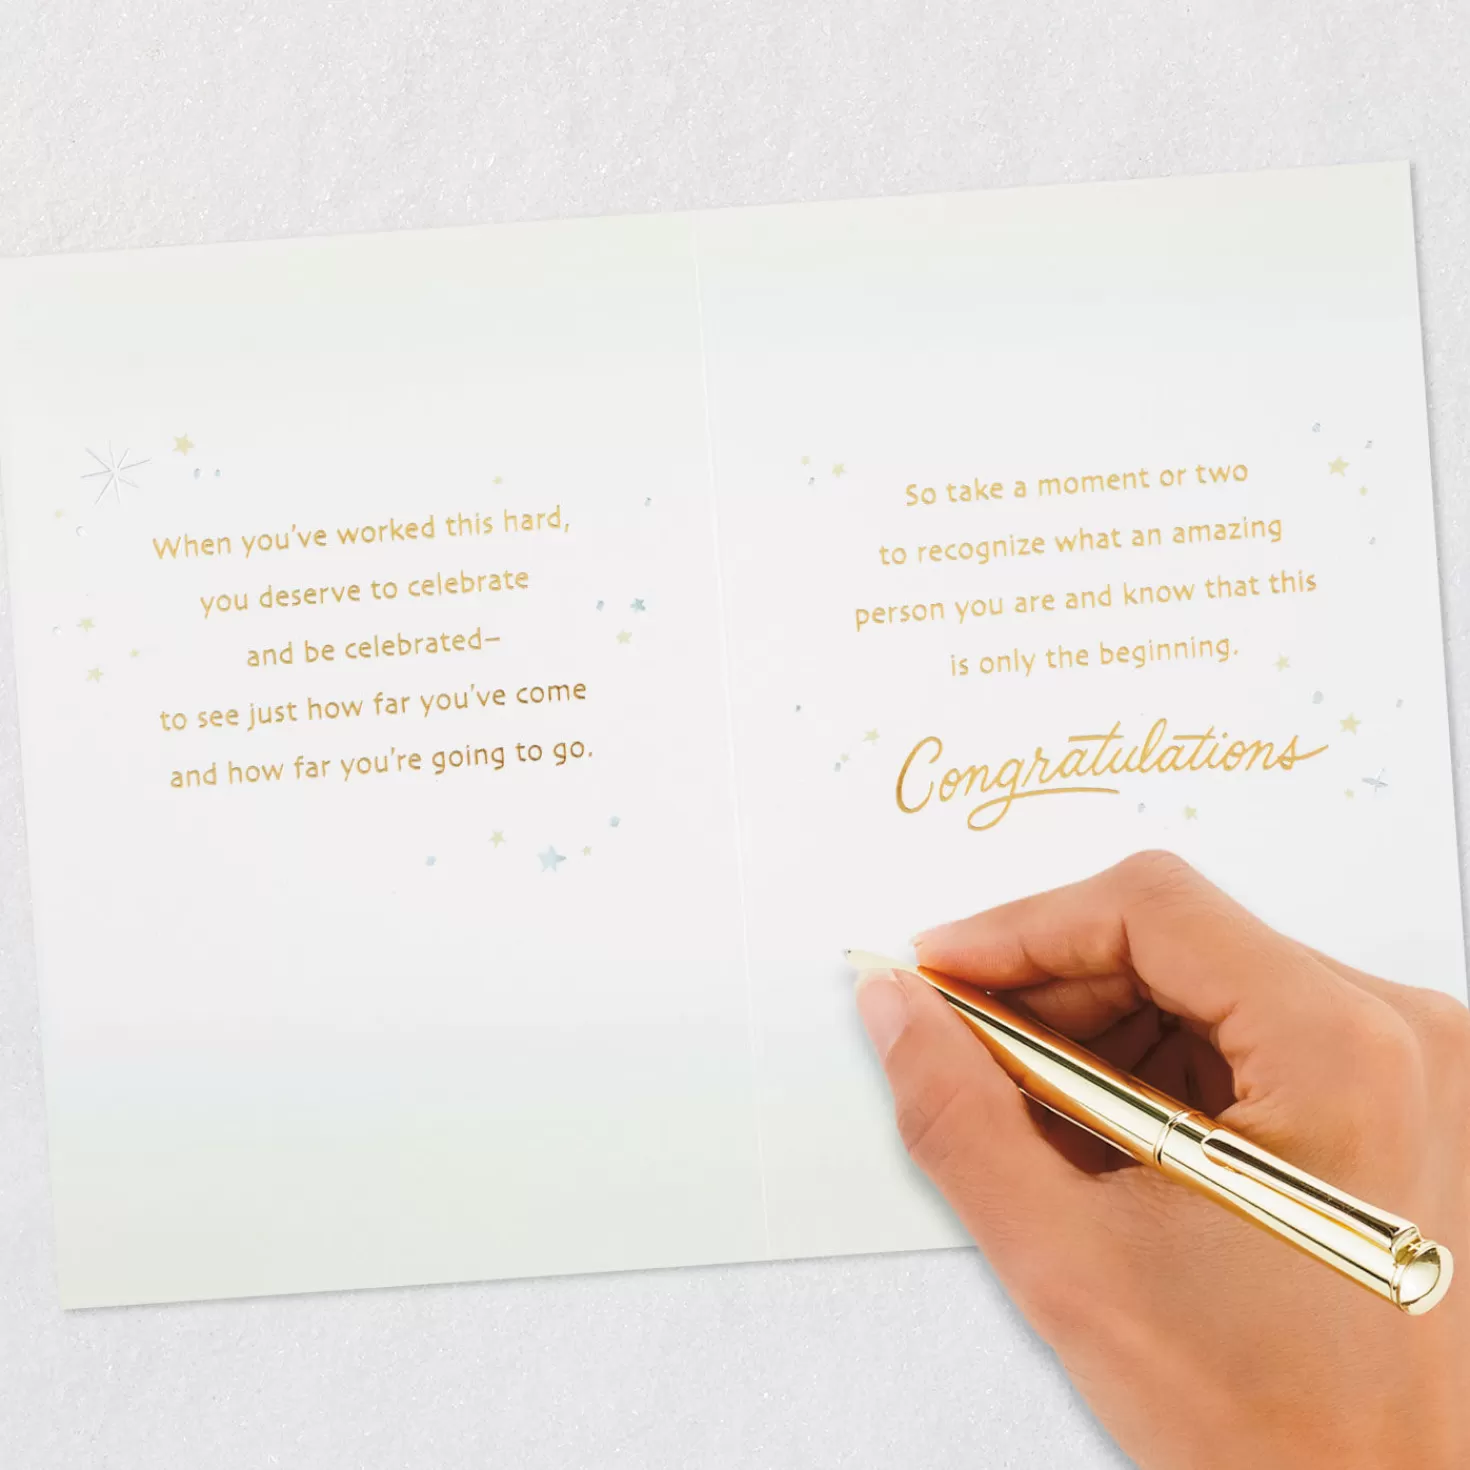 When you've worked this hard,
you deserve to celebrate
and be celebrated–
to see just how far you've come
and how far you're going to go.
So take a moment or two
to recognize what an amazing
person you are and know that this
is only the beginning.
Congratulations